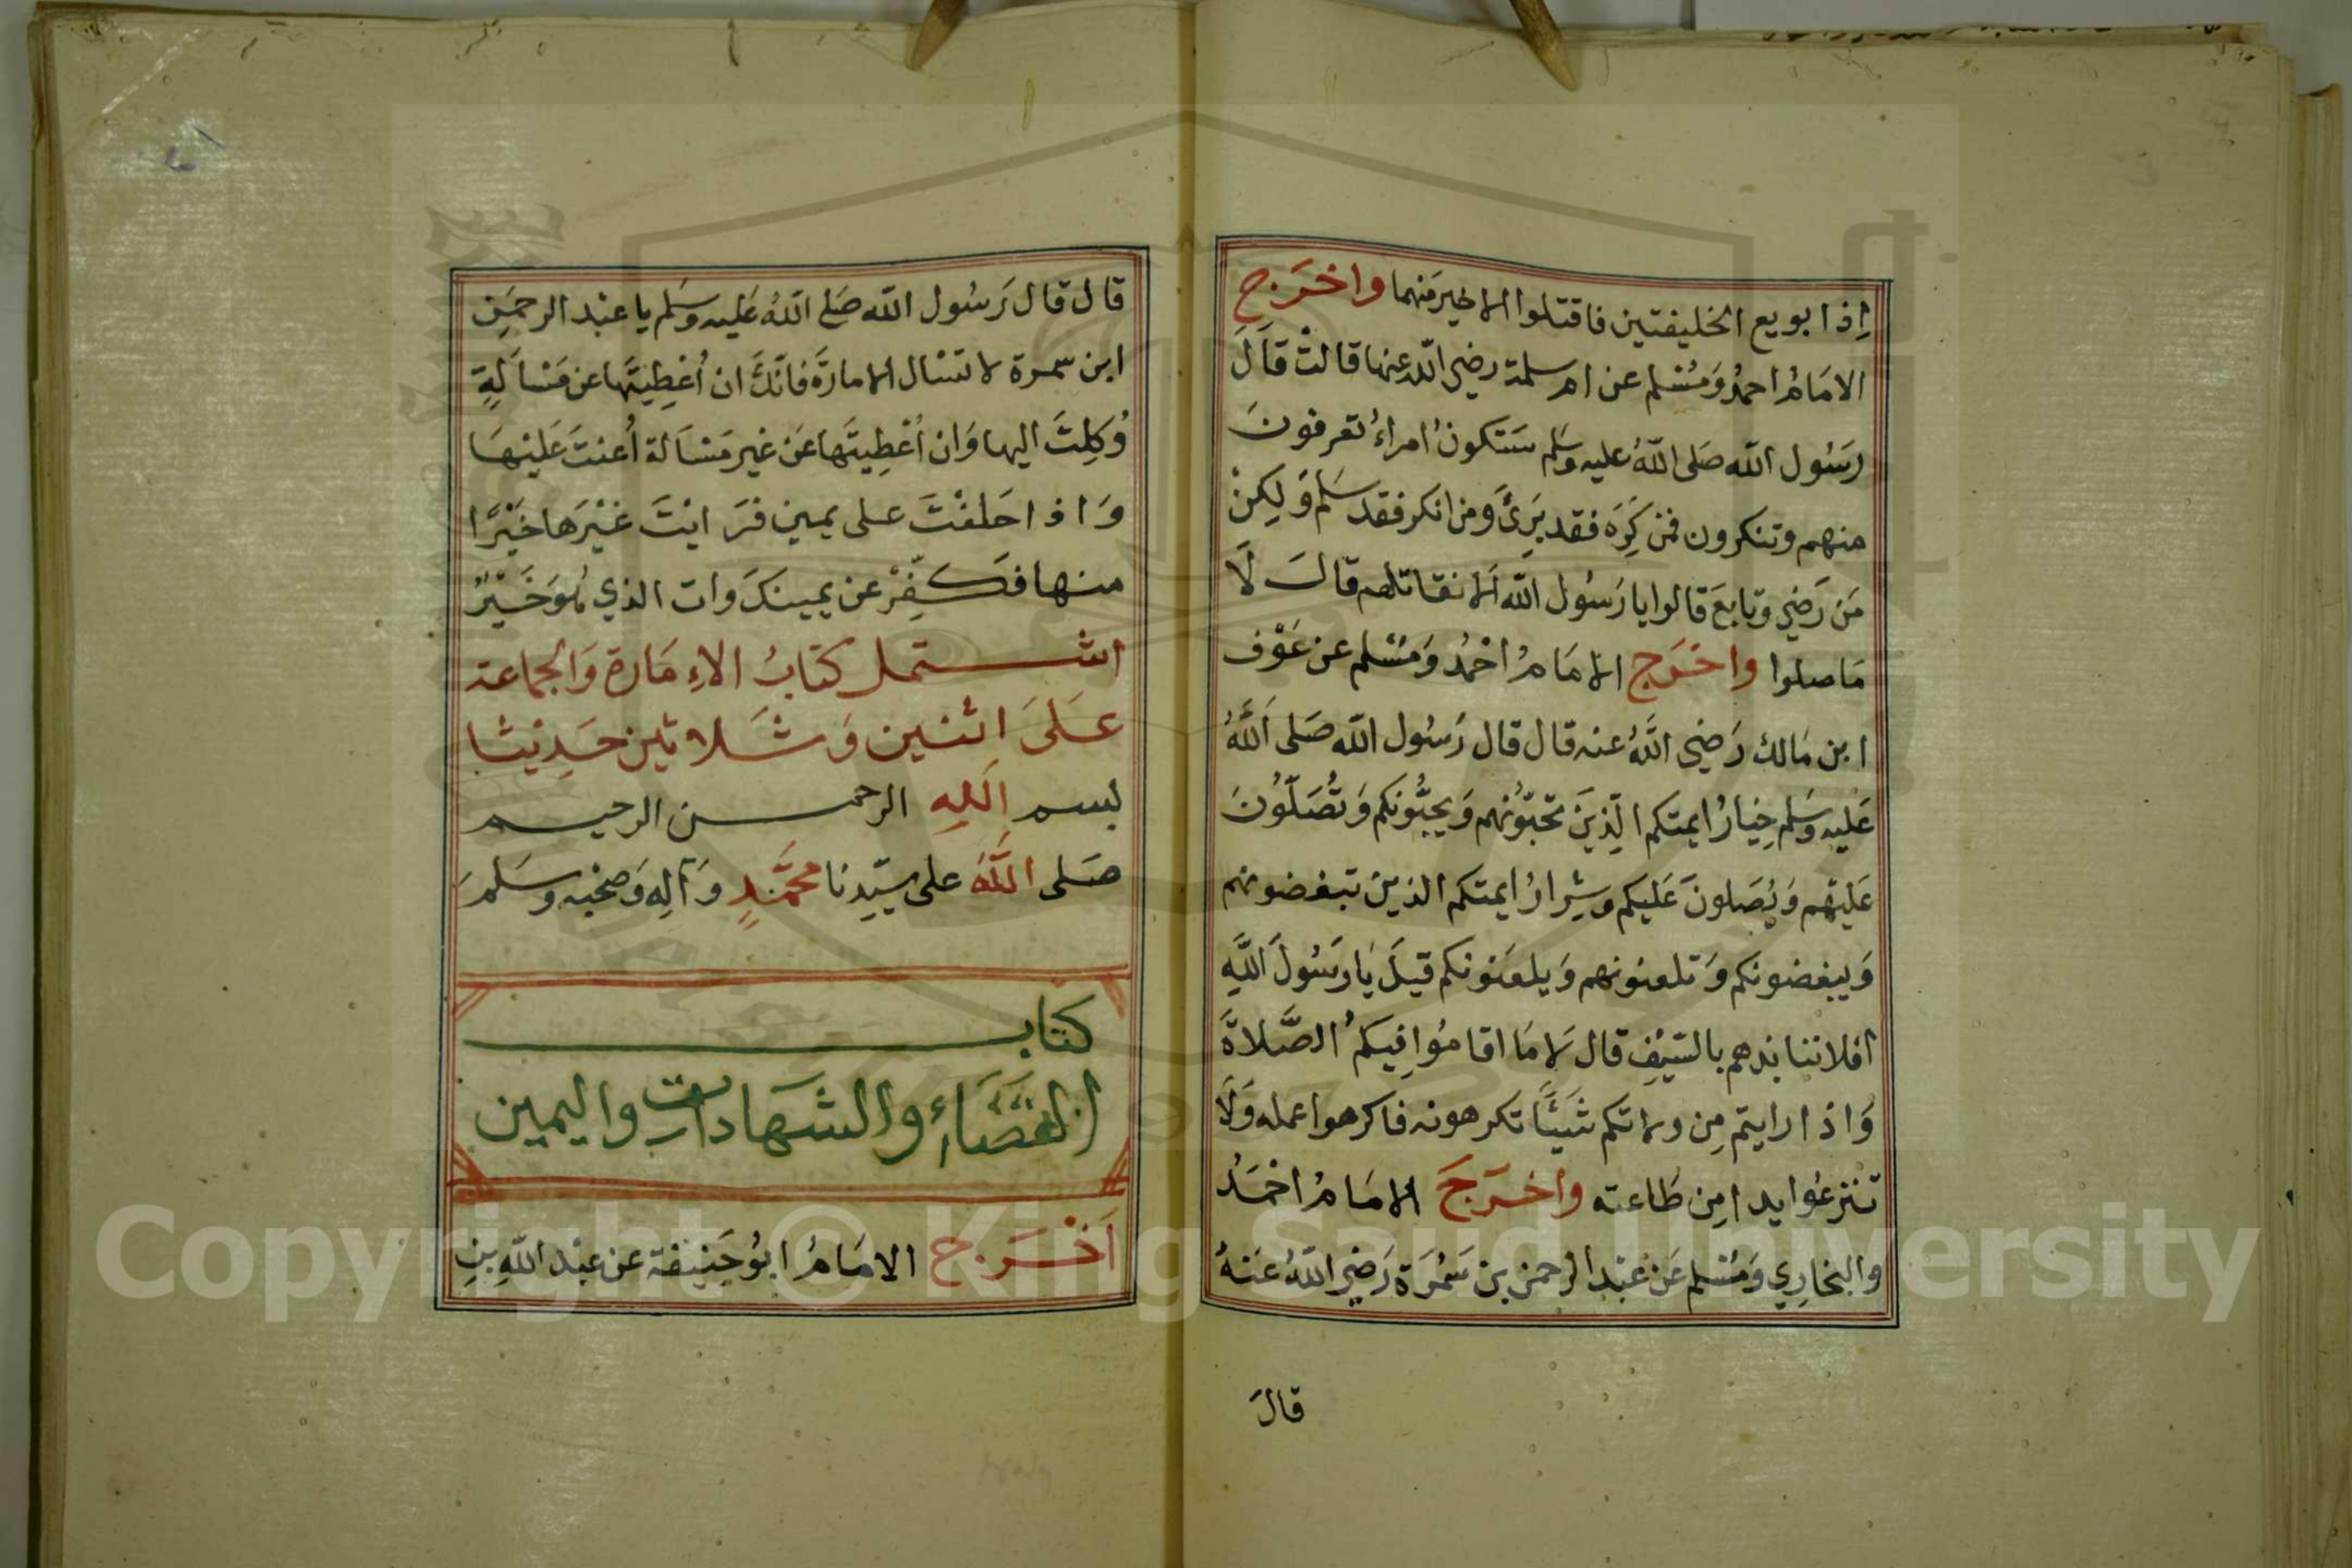 إذا بويع الخليفتين فاقتلوا الاخير منهما واخرج
الامام احمد ومسلم عن ام سلمة رضي الله عنها قالت قال
رسول الله صلى الله عليه وسلم ستكون امراء تعرفون
منهم وتنكرون فمن كره فقد برئ ومن انكر فقد سلم ولكن
من رضي وتابع قالوا يا رسول الله الا نقاتلهم قال لا
ما صلوا واخرج الامام احمد ومسلم عن عوف
ابن مالك رضي الله عنه قال قال رسول الله صلى الله
عليه وسلم خيار ايمتكم الذين تحبونهم ويحبونكم وتصلون
عليهم ويصلون عليكم وشرار ايمتكم الذين تبغضونهم
ويبغضونكم وتلعنونهم ويلعنونكم قيل يا رسول الله
افلا ننابذهم بالسيف قال لا ما اقاموا فيكم الصلاة
واذا رايتم من ولاتكم شيئا تكرهونه فاكرهوا عمله ولا
تنزعوا يدا من طاعته واخرج الامام احمد
والبخاري ومسلم عن عبد الرحمن بن سمرة رضي الله عنه
قال
قال قال رسول الله صلى الله عليه وسلم يا عبد الرحمن
ابن سمرة لا تسال الامارة فانك ان أعطيتها عن مسألة
وكلت اليها وان أعطيتها عن غير مسألة أعنت عليها
واذا حلفت على يمين فرايت غيرها خيرا
منها فكفر عن يمينك وات الذي هو خير
اشتمل كتاب الإمارة والجماعة
على اثنين وثلاثين حديثا
بسم الله الرحمن الرحيم
صلى الله على سيدنا محمد وآله وصحبه وسلم
كتاب
القضاء والشهادات واليمين
أخرج الامام ابو حنيفة عن عبد الله بن
Copyright © King Saud University